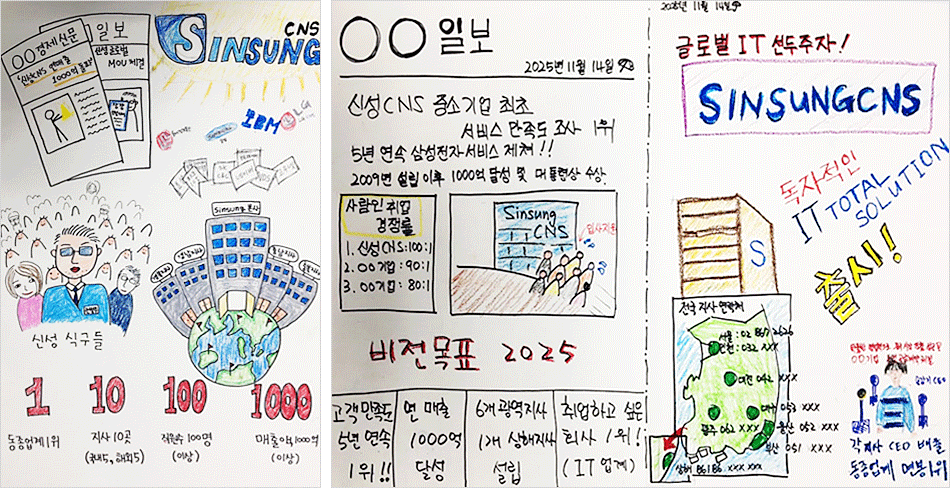 ○○경제신문
'신성CNS 연매출
1000억 돌파'
일보
신성글로벌
MOU 체결
CNS
SINSUNG
IBM
Sinsung 본사
신성 식구들
1 10 100 1000
동종업계 1위
지사 10곳
(국내5, 해외5)
직원수 100명
(이상)
매출액 1000억
(이상)
○○일보
2025년 11월 14일
신성CNS 중소기업 최초
서비스 만족도 조사 1위
5년 연속 삼성전자서비스 제쳐!!
2009년 설립 이후 1000억 달성 및 대통령상 수상
사람인 취업
경쟁률
1. 신성CNS:100:1
2. ○○기업: 90:1
3. ○○기업: 80:1
Sinsung
CNS
입사지원
비전목표 2025
고객만족도
5년 연속
1위!!
연 매출
1000억
달성
6개 광역지사
1개 상해지사
설립
취업하고 싶은
회사 1위!
(IT 업계)
2025년 11월 14일
글로벌 IT 선두주자!
SINSUNGCNS
독자적인
IT TOTAL
SOLUTION
출시!
S
전국 지사 연락처
서울: 02 867 2626
인천: 032 XXX
대전 042 XXX
대구 053 XXX
광주 062 XXX
울산 052 XXX
부산 051 XXX
상해 86186 XXX XXX
각지사 CEO 배출
동종업계 연봉1위